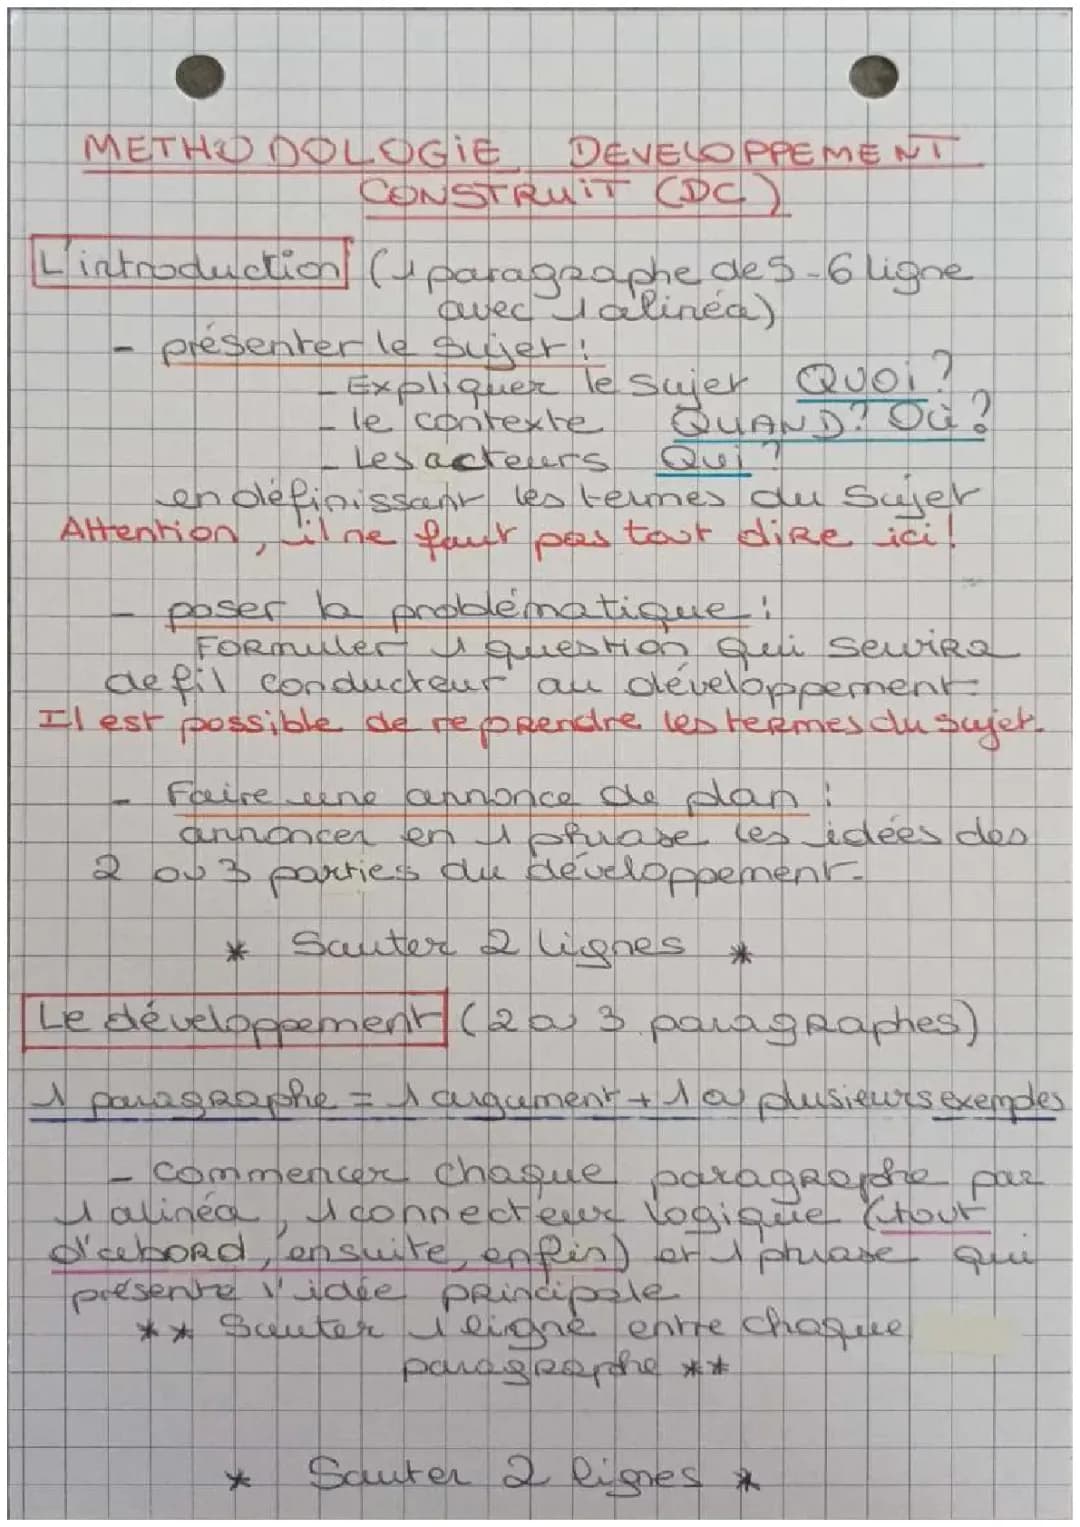 METHODOLOGIE DEVELOPPEMENT
CONSTRUIT (DC)
L'introduction (1 paragraphe de 5-6 ligne
avec 1 alinéa)
- présenter le sujet :
- Expliquer le sujet QUOI ?
- le contexte QUAND ? OÙ ?
- Les acteurs Qui ?
en définissant les termes du sujet
Attention, il ne faut pas tout dire ici !
- poser la problématique :
Formuler 1 question qui servira
de fil conducteur au développement
Il est possible de reprendre les termes du sujet.
- Faire une annonce de plan :
annoncer en 1 phrase les idées des
2 ou 3 parties du développement.
* Sauter 2 lignes *
Le développement (2 ou 3 paragraphes)
1 paragraphe = 1 argument + 1 ou plusieurs exemples
- commencer chaque paragraphe par
1 alinéa, 1 connecteur logique (tout
d'abord, ensuite, enfin) et 1 phrase qui
présente l'idée principale
** Sauter 1 ligne entre chaque
paragraphe **
* Sauter 2 lignes *